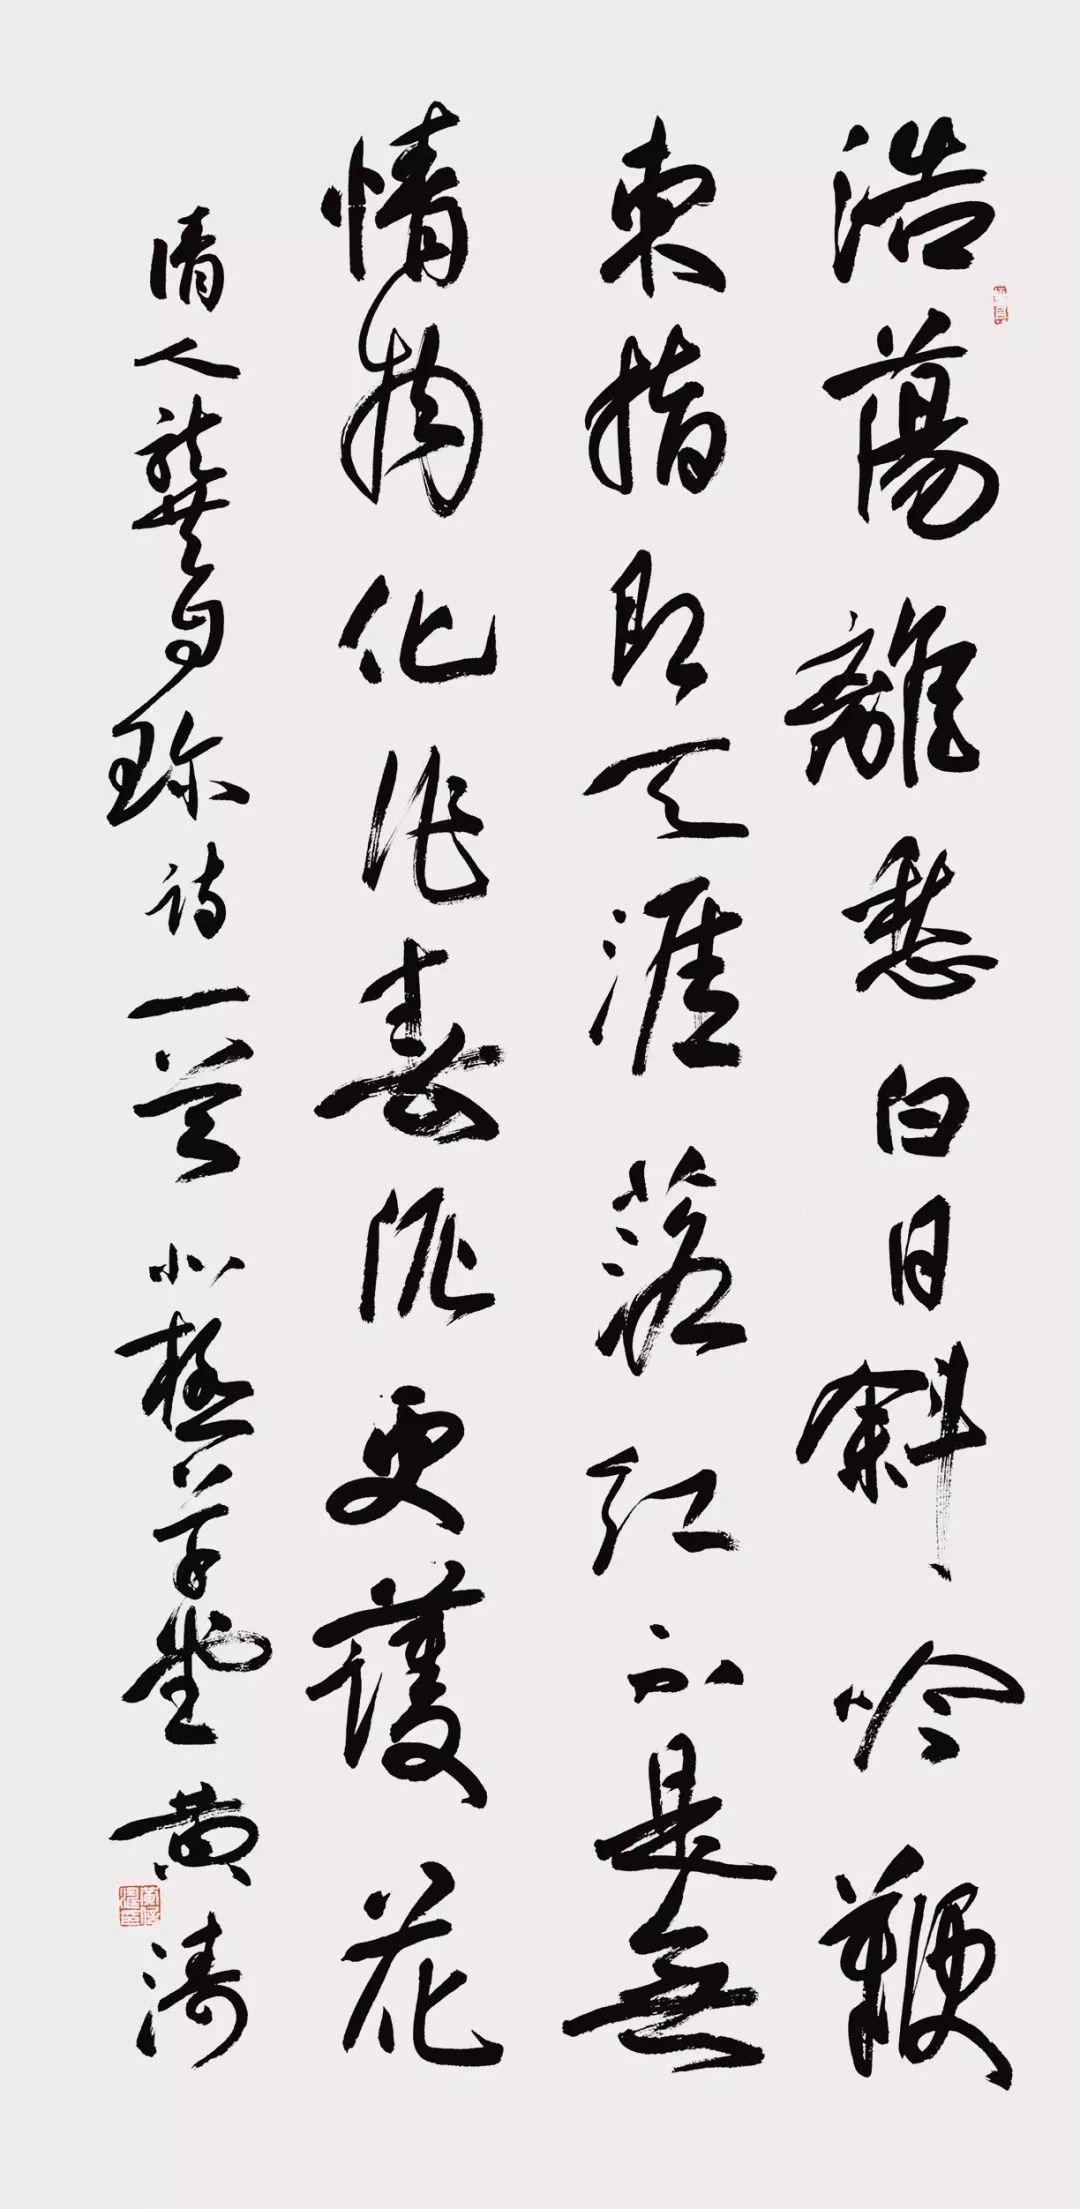 浩蕩離愁白日斜吟鞭
東指即天涯落紅不是無
情物化作春泥更護花
清人龔自珍詩一首北極草堂黄濤